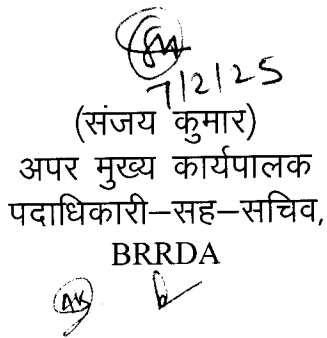 7/2/25
(संजय कुमार)
अपर मुख्य कार्यपालक
पदाधिकारी–सह–सचिव,
BRRDA
AK